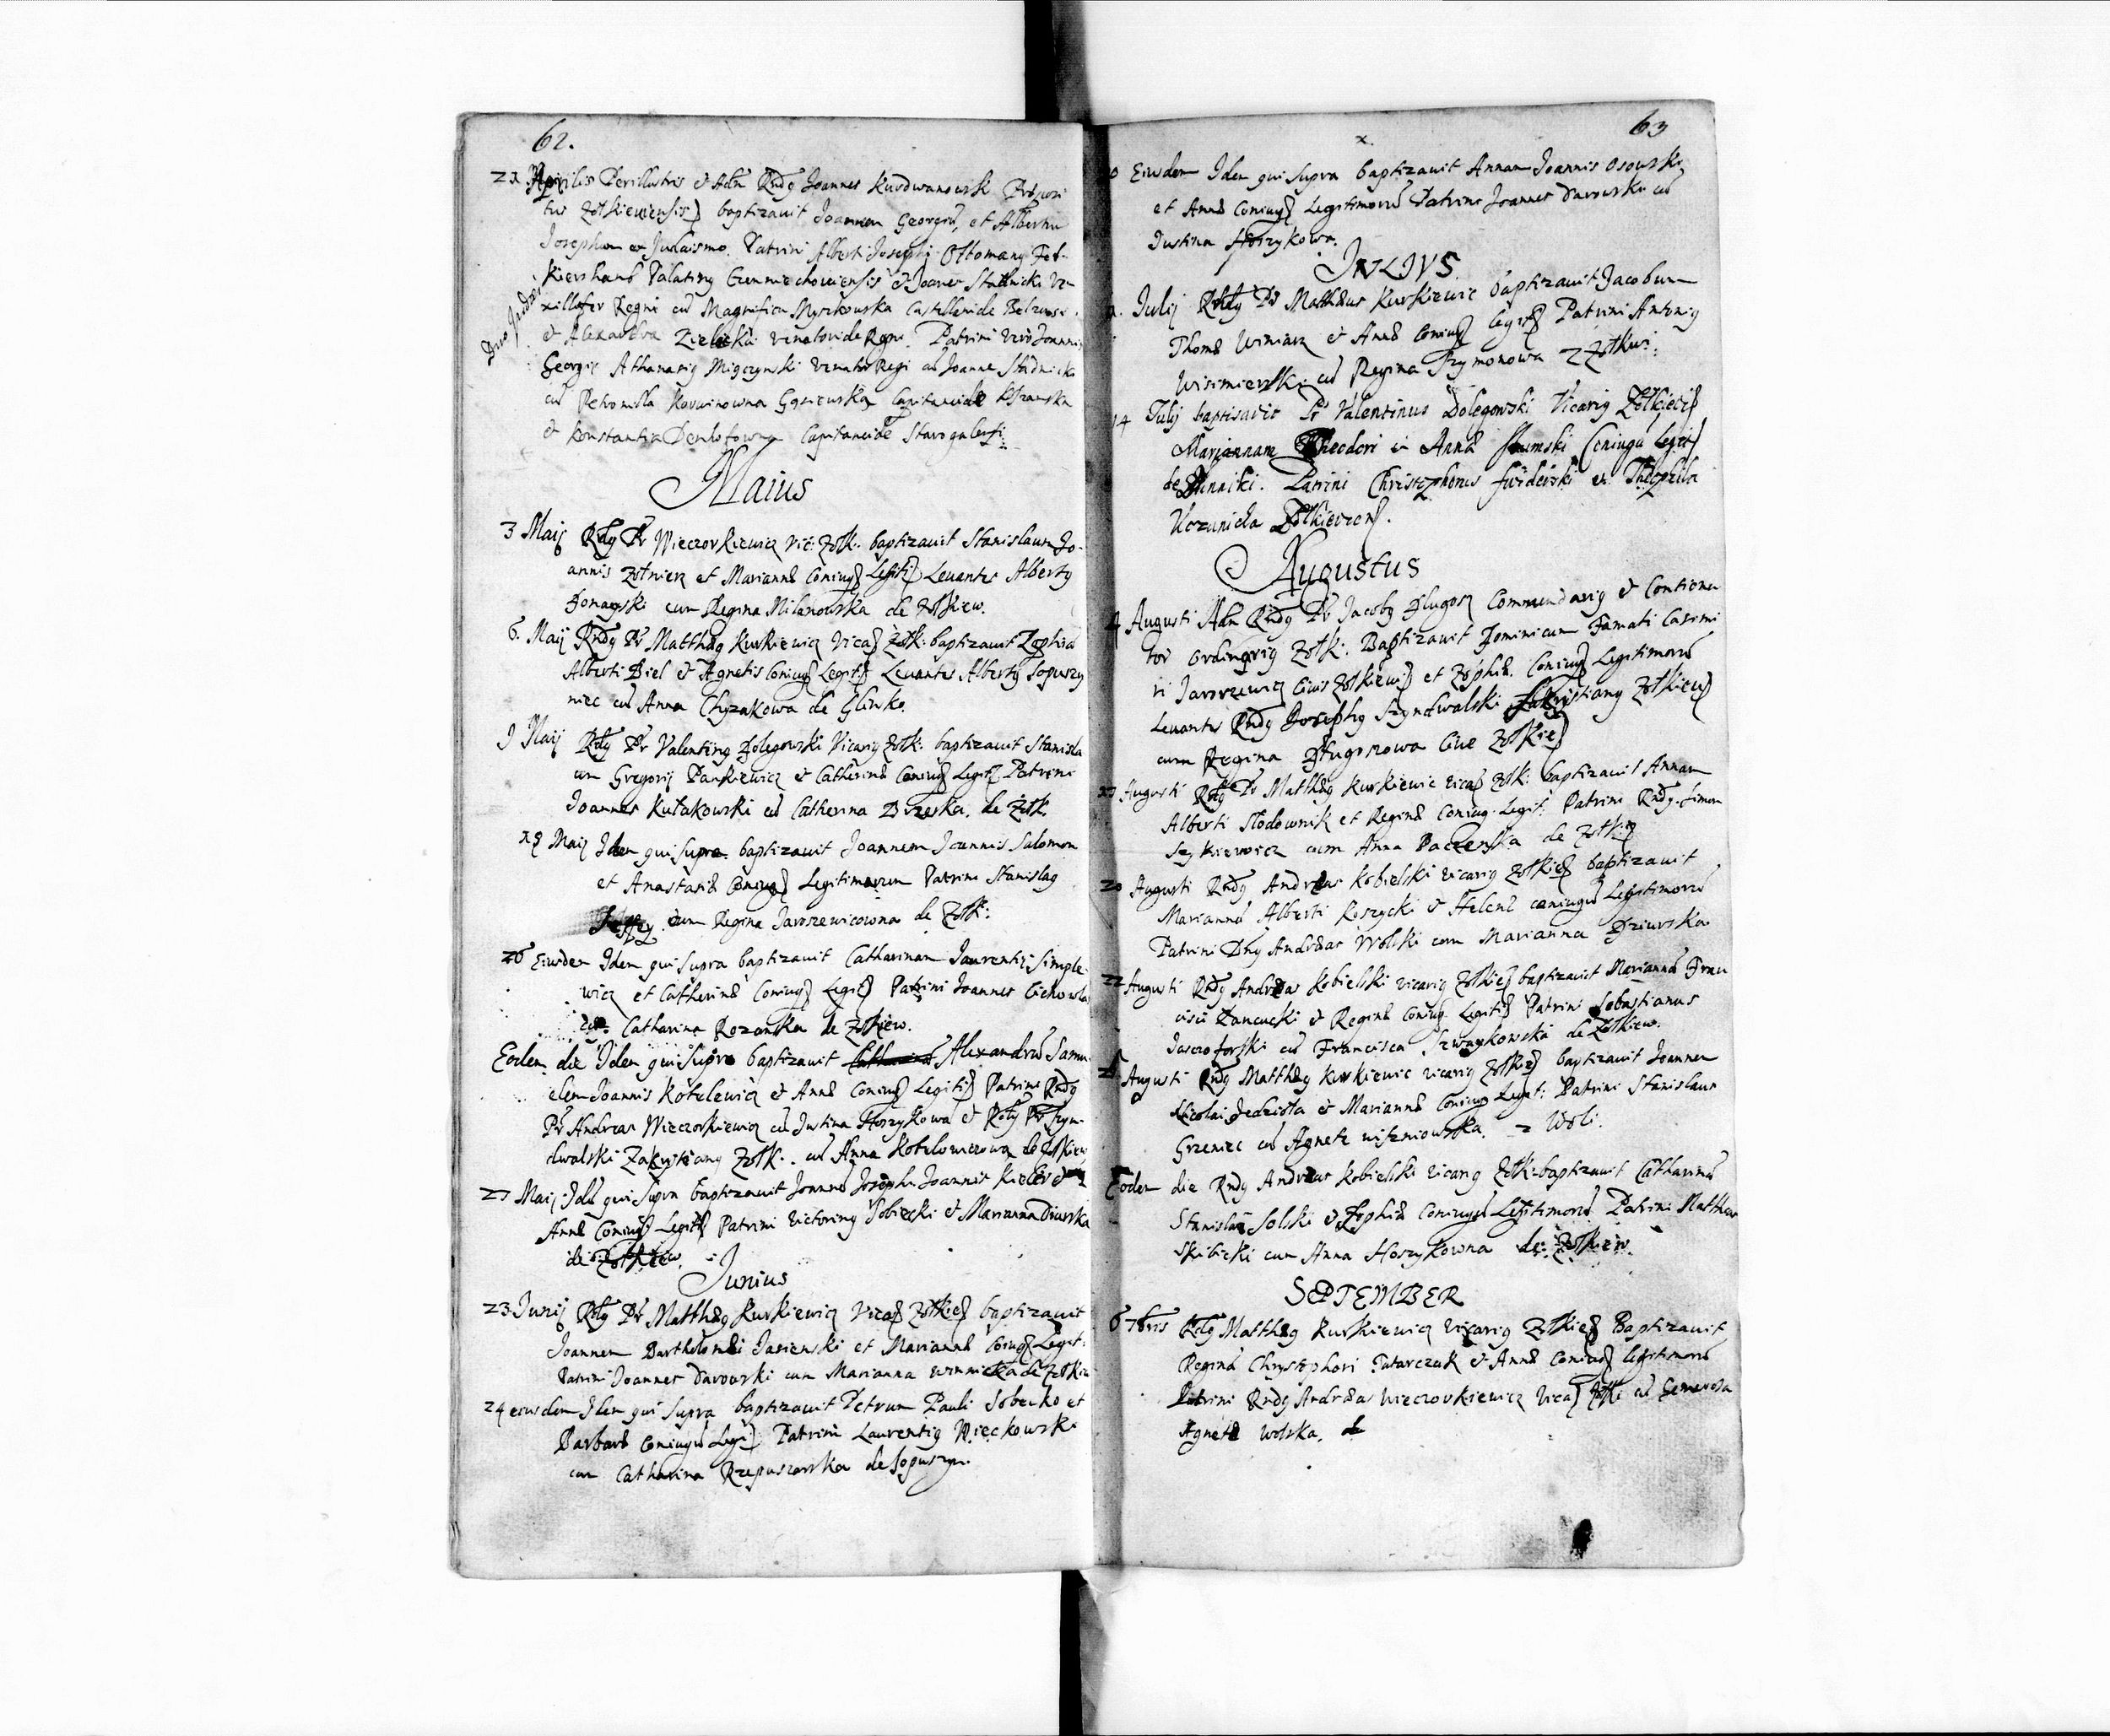 62.
21 Aprilis Perillustris et Adm Rndg Joannes Kurdwanowsk Prposi
tus Zolkieviensis baptizauit Joannem Georgiu, et Albertu
Josephum ex Judaismo. Patrini Alberti Josephi Ottomany Fel-
Kiershamb Palatiny Czerniechowiensis et Joanes Stadnicki Ve-
xillifer Regni cu Magnifica Myszkowska Castellanide Belzensi
et Alexandra Zielecka venatoride Regni. Patrini vero Joannis
Georgij Athanasig Migczynski venator Regi cu Joanne Stadnicki
cu Petronilla Korwinowna Gąsiewska Capitaneide
et Konstantia Denhofowna Capitaneide
Duo Judaei
Maius
3 Maij Rdg Pr Wieczorkiewicz Vic: Zolk. baptizauit Stanislaum Jo-
annis Zolnierz et Mariannæ Coniug Legit Leuantes Alberty
Donayski cum Regina Milanowska de Zolkiew.
6. Maij Rndg Pr Matthæg Kurkiewicz Vica Zolk: baptizauit Zophia
Alberti Biel et Agnetis Coniug Legit Leuantes Alberty Sopuszy
niec cu Anna Chyzakowa de Glinko.
9 Maij Rdg Pr Valenting Dolegowski Vicarig Zolk: baptizauit Stanisla
um Gregorij Pankiewicz et Catherinæ Coniug Legit Patrini
Joannes Kulakowski cu Catherina Brzeska. de Zolk.
18 Maij Idem qui supra baptizauit Joannem Joannis Salomon
et Anastasiæ Coniug Legitimorum Patrini Stanislag
cum Regina Jaroszewicowna de Zolk:
26 Eiusdem Idem qui supra baptizauit Catharinam Laurentij Simple-
wicz et Catherinæ Coniug Legit Patrini Joannes
Catharina Rozanska de Zolkiew.
Eodem die Idem qui supra baptizauit Alexandru Samu-
elem Joannis Kotelewicz et Annæ Coniug Legiti Patrini Rndg
Pr Andreas Wieczorkiewicz cu Justina Hoszykowa et Rdg Pr Szyn-
dwalski Zakristiang Zolk. cu Anna Kotelowiczowa de Zolkiew
27 Maij Ide qui supra baptizauit Joanne Josephu Joannis Kieler et
Annæ Coniug Legit Patrini Victoring Sobiecki et Marianna Diurska
de Zolkiew.
Junius
23 Junij Rdg Pr Matthæg Kurkiewicz Vica Zolkie baptizauit
Joannem Bartholomæi Jasienski et Mariannæ Coiug Legit:
Patrini Joannes Darowski cum Marianna Winnicka de Zolkie
24 eiusdem Idem qui supra baptizauit Petrum Pauli Sobenko et
Barbaræ Coniugu Legi Patrini Laurentig Więckowski
cum Catharina Rzepuszowska de Sopuszyn.
63
x
0 Eiusdem Idem qui supra baptizauit Annam Joannis Osowski
et Annæ Coniug Legitimoru Patrini Joannes Darowski cu
Justina Hoszykowa.
JVLIVS
Julij Rdg Pr Matthæus Kurkiewic baptizauit Jacobum
Thomæ Winiarz et Annæ Coniug legit Patrini Antonig
Wisimierski cu Regina Szymonowa z Zolkwi:
14 Julij baptisavit Pr Valentinus Dolegowski Vicarig Zolkieviæ
Mariannam Theodori et Anna Slumski Coniugu Legit
de Winniki. Patrini Christophorus Swiderski et Theophila
Uczunicka Zolkievien.
Augustus
4 Augusti Adm Rndg Pr Jacobg Dlugosz Commendarig et Contiona
tor Ordinarig Zolk: Baptizauit Dominicum Famati Casimi
ri Jaworzewicz Civis Zolkiewi et Zophiæ Coniug Legitimoru
Leuantes Rndg Josephg Szyndwalski Zakristiang Zolkiew
cum Regina Dlugoszowa Cive Zolkie
Augusti Rdg Pr Matthæg Kurkiewic vica Zolk: baptizauit Annam
Alberti Slodownik et Reginæ Coniug. Legit: Patrini Rndg. Simon
Szykiewicz cum Anna Paczenska de Zolkie
20 Augusti Rndg Andreas Kobielski vicarig Zolkie baptizauit
Marianna Alberti Koszycki et Helenæ coniugu Legitimoru
Patrini Dng Andreas Wolski cum Marianna Dziurska
22 Augusti Rndg Andreas Kobielski vicarig Zolkie baptizauit Marianna Fran
cisci Zancucki et Reginæ Coniug Legiti Patrini Sobastianus
Jascroforski cu Francisca Szwaykowska de Zolkiew.
Augusti Rndg Matthæg Kurkiewic vicarig Zolkie baptizauit Joannem
Nicolai Jedziola et Mariannæ Coniug Legit: Patrini Stanislaus
Grzeniec cu Agnete Wiszniowska. z Woli.
Eodem die Rndg Andreas Kobielski vicarig Zolk: baptizauit Catharina
Stanislai Solski et Zophiæ Coniugu Legitimoru Patrini Mattheu
Skibicki cum Anna Hoszykowna de Zolkiew.
SEPTEMBER
6 7bris Rdg Matthæg Kurkiewicz Vicarig Zolkie Baptizauit
Regina Chrystophori Tatarczuk et Annæ Coniug legitimoru
Patrini Rndg Andreas Wieczorkiewicz Vica Zolki cu Generosa
Agnete Wolska. de